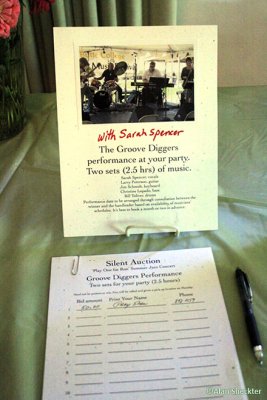 with Sarah Spencer
The Groove Diggers
performance at your party.
Two sets (2.5 hrs) of music.
Sarah Spencer, vocals
Larry Peterson, guitar
Jim Schmidt, keyboard
Christine Lopado, bass
Bill Tolley, drums
Performance date to be arranged through consultation between the
winner and the bandleader based on availability of musicians'
schedules. It's best to book a month or two in advance.
Silent Auction
Play One for Ron Summer Jazz Concert
Groove Diggers Performance
Two sets for your party (2.5 hours)
Bid amount Print Your Name Phone
1
2
3
4
5
6
7
8
9
10
©Alan Sheckter